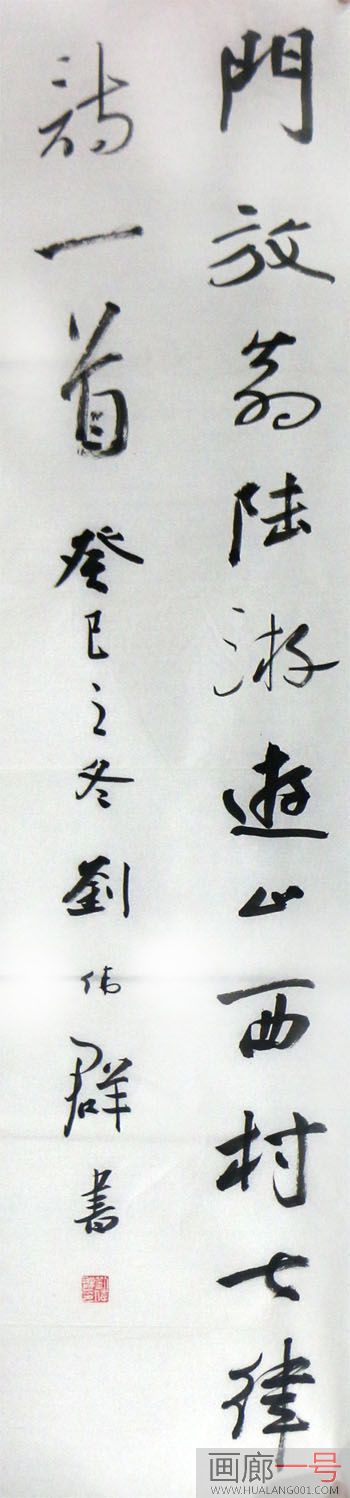 門放翁陸游遊山西村七律
詩一首癸巳之冬劉偉群書
画廊一号
WWW.HUALANG001.COM